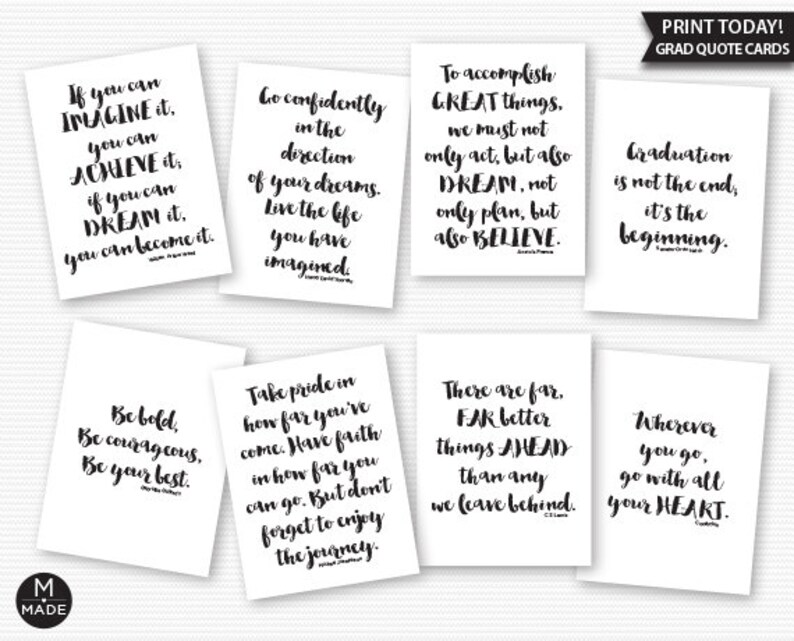 PRINT TODAY!
GRAD QUOTE CARDS
If you can
IMAGINE it,
you can
ACHIEVE it;
if you can
DREAM it,
you can become it.
William Arthur Ward
Go confidently
in the
direction
of your dreams.
Live the life
you have
imagined.
Henry David Thoreau
To accomplish
GREAT things,
we must not
only act, but also
DREAM, not
only plan, but
also BELIEVE.
Anatole France
Graduation
is not the end;
it's the
beginning.
Be bold,
Be courageous,
Be your best.
Take pride in
how far you've
come. Have faith
in how far you
can go. But don't
forget to enjoy
the journey.
Michael Josephson
There are far,
FAR better
things AHEAD
than any
we leave behind.
C S Lewis
Wherever
you go,
go with all
your HEART.
Confucius
M
MADE